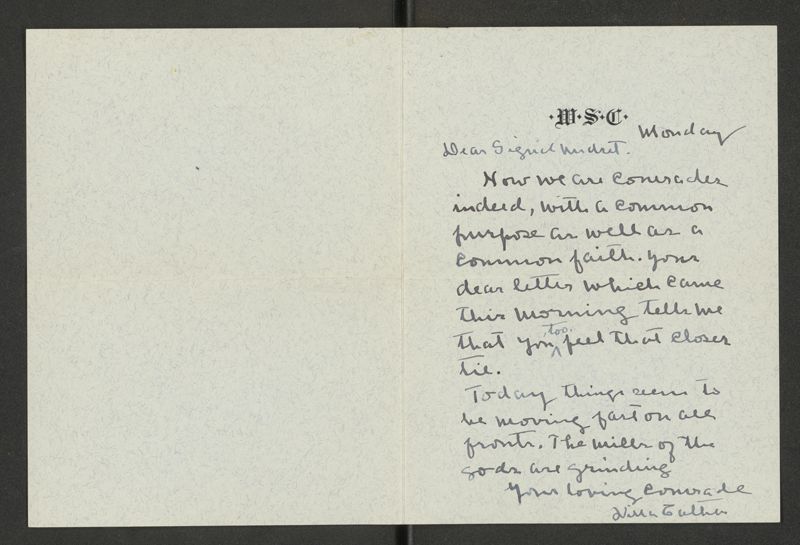 ·W·S·C·
Monday
Dear Sigrid Undset.
Now we are comrades
indeed, with a common
purpose as well as a
common faith. Your
dear letter which came
this morning tells me
that you, too, feel that closer
tie.
Today things seem to
be moving fast on all
fronts. The mills of the
gods are grinding
Your loving comrade
Willa Cather